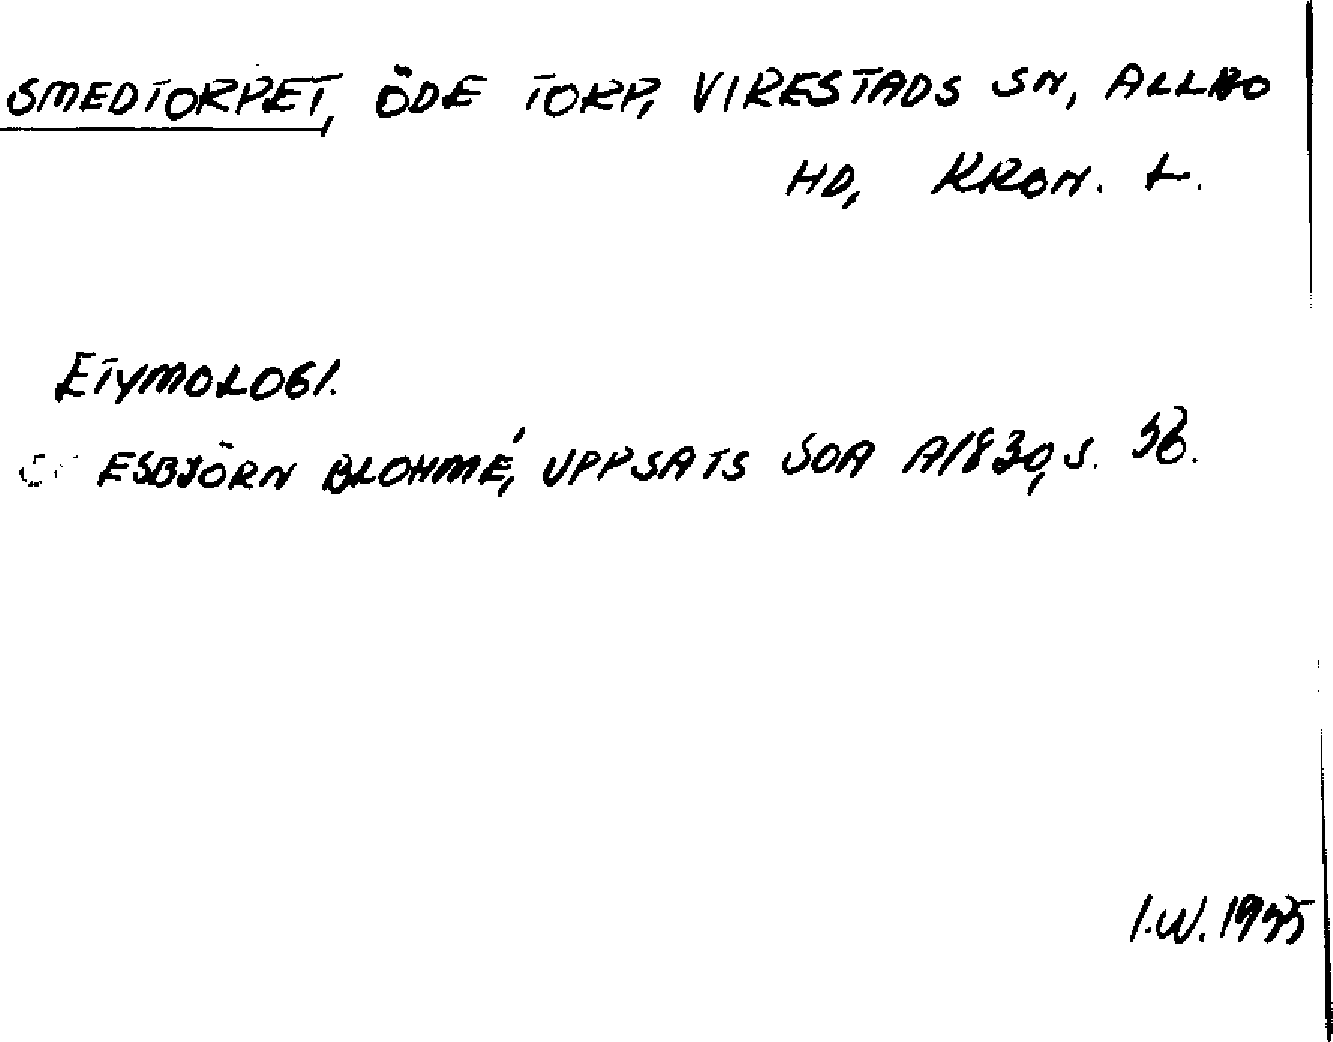 SMEDTORPET, ÖDE TORP, VIRESTADS SN, ALLBO
HD, KRON. L.
ETYMOLOGI.
ESBJÖRN BLOHMÉ, UPPSATS SOA A1830, S. 56.
I.W. 1955